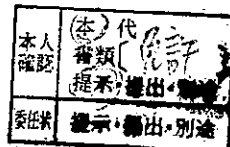 本人確認 本 代
書類[免許
提示・提出・別途
委任状 提示・提出・別途